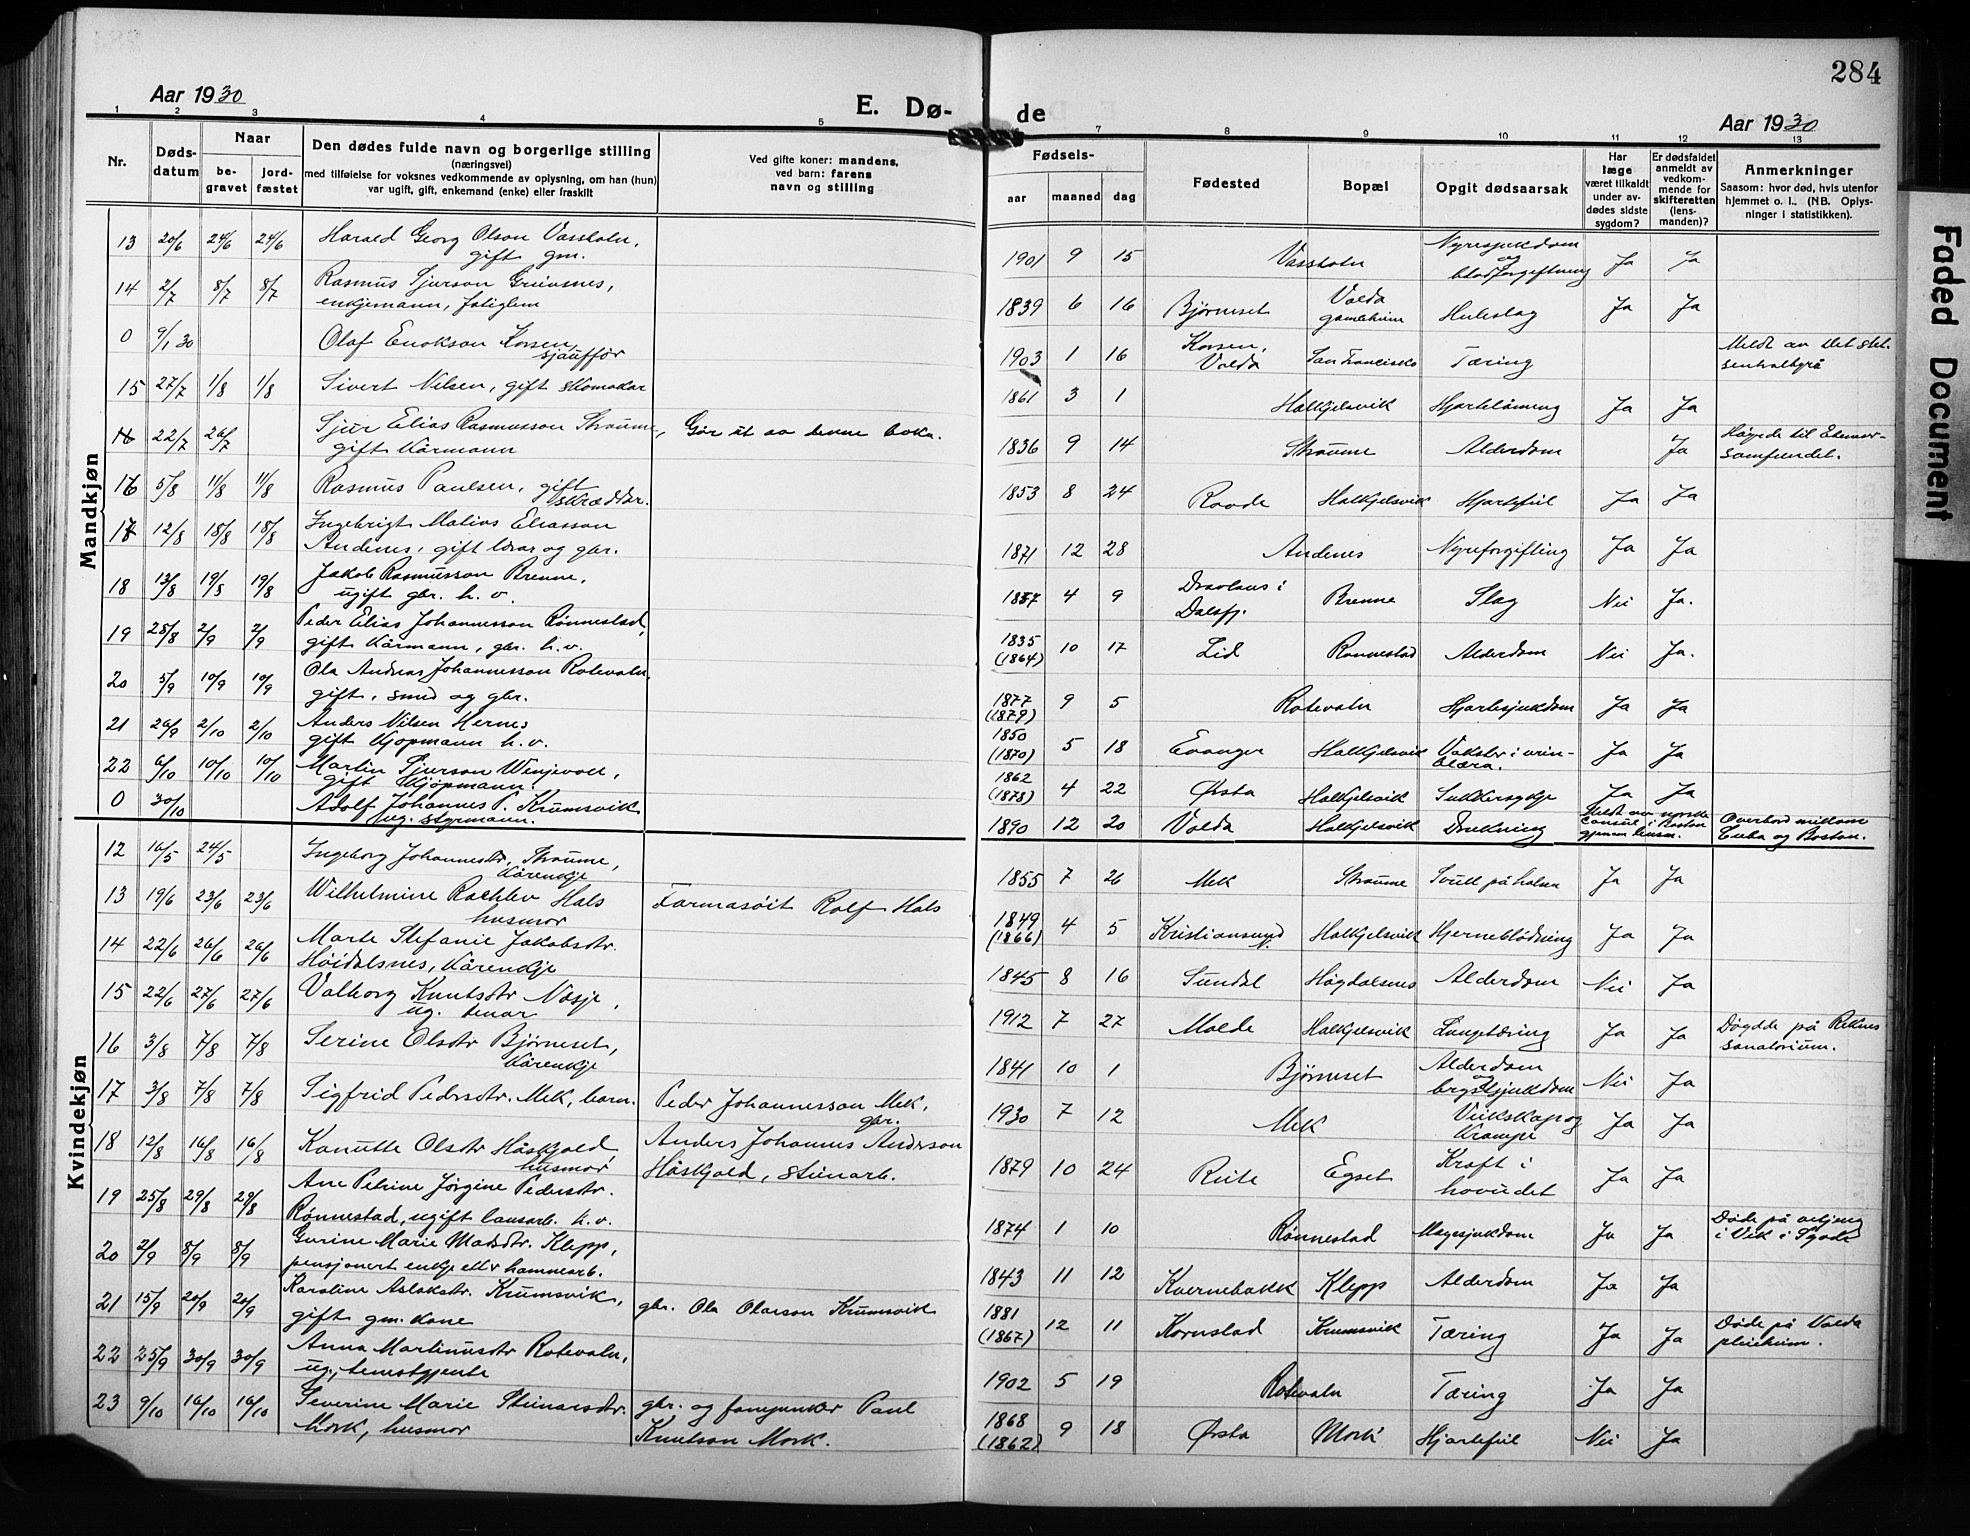 284
Aar 1930
E. Dø-
de
Aar 1930
Faded Document
1 2 3 4 5
7 8 9 10 11 12 13
Nr.
Døds-
datum
Naar
be-
gravet
jord-
fæstet
Den dødes fulde navn og borgerlige stilling
(næringsvei)
med tilføielse for voksnes vedkommende av oplysning, om han (hun)
var ugift, gift, enkemand (enke) eller fraskilt
Ved gifte koner: mandens,
ved barn: farens
navn og stilling
Fødsels-
aar
maaned
dag
Fødested
Bopæl
Opgit dødsaarsak
Har
læge
været tilkaldt
under av-
dødes sidste
sygdom?
Er dødsfaldet
anmeldt av
vedkom-
mende for
skifteretten
(lens-
manden)?
Anmerkninger
Saasom: hvor død, hvis utenfor
hjemmet o. l.. (NB. Oplys-
ninger i statistikken).
Mandkjøn
13 20/6 24/6 24/6 Harald Georg Olson Vassbotn,
gift gm.
1901 9 15 Vassbotn Nyresjukdom
og
blodforgiftning Ja Ja
14 2/7 8/7 8/7 Rasmus Sjurson Greivsnes,
enkjemann, fatiglem
1839 6 16 Bjørneset Volda
gamleheim Heleslag Ja Ja
0 9/1 30 Olaf Enokson Korsen,
sjauffør
1903 1 16 Korsen,
Volda San Francisko Tæring Meldt av Det stat.
sentralbyrå
15 27/7 1/8 1/8 Sivert Nilsen, gift skomakar
1861 3 1 Halkjelsvik Hjartelaming Ja Ja
22/7 26/7 Sjur Elias Rasmusson Straume,
gift kårmann Går ut av denne boka.
1836 9 14 Straume Alderdom Ja Høyrde til Ebeneser-
samfundet.
16 5/8 11/8 11/8 Rasmus Paulsen, gift
skræddar.
1853 8 24 Raade Halkjelsvik Hjartefeil Ja Ja
17 12/8 18/8 18/8 Ingebrigt Matias Eliasson
Andenes, gift lærar og gbr.
1871 12 28 Andenes Nyreforgifting Ja Ja
18 13/8 19/8 19/8 Jakob Rasmusson Brenne,
ugift gbr. h. v.
1857 4 9 Dravlaus i
Dalsfj. Brenne Slag Nei Ja.
19 28/8 2/9 2/9 Peder Elias Johannesson Rønnestad,
gift kårmann, gbr. h. v.
1835
(1864) 10 17 Lid Rønnestad Alderdom Nei Ja.
20 5/9 10/9 10/9 Ola Andreas Johannesson Rotevatn,
gift, smed og gbr.
1877
(1879) 9 5 Rotevatn Hjartesjukdom Ja Ja
21 26/9 2/10 2/10 Anders Nilsen Hernes
gift kjøpmann h. v.
1850
(1870) 5 18 Evanger Halkjelsvik Vokster i urin-
blæra. Ja Ja
22 6/10 10/10 10/10 Martin Sjurson Wenjevoll,
gift kjøpmann.
1862
(1878) 4 22 Ørsta Halkjelsvik Sukkersykje Ja Ja
0 30/10 Adolf Johannes P. Krumsvik
ug. styrmann.
1890 12 20 Volda Halkjelsvik Drukning Meldt av norske
consul i Boston
gjenom lensm. Overbord millom
Cuba og Boston.
Kvindekjøn
12 16/5 24/5 Ingeborg Johannesdtr. Straume,
kårenkje
1855 7 26 Mek Straume Svull på halsen Ja Ja
13 19/6 23/6 23/6 Wilhelmine Rachlev Hals
husmor Farmasøit Rolf Hals
1849
(1866) 4 5 Kristiansund Halkjelsvik Hjerneblødning Ja Ja
14 22/6 26/6 26/6 Marte Stefanie Jakobsdtr.
Høidalsnes, kårenkje
1845 8 16 Sundal Høgdalsnes Alderdom Nei Ja
15 22/6 27/6 27/6 Valborg Knutsdtr Nosje,
ug. tenar
1912 7 27 Molde Halkjelsvik Lungetæring Ja Ja Døydde på Reknes
sanatorium.
16 3/8 7/8 7/8 Serine Olsdtr Bjørneset,
kårenkje
1841 10 1 Bjørneset Alderdom
og
brystsjukdom Nei Ja
17 3/8 7/8 7/8 Sigfrid Pedersdtr. Mek, barn. Peder Johannesson Mek,
gbr.
1930 7 12 Mek Veikskap og
krampe Ja Ja
18 12/8 16/8 16/8 Kanutte Olsdtr Håskjold,
husmor Anders Johannes Anderson
Håskjold, steinarb.
1879 10 24 Reite Egset Kræft i
hovudet Ja Ja
19 25/8 29/8 29/8 Ane Petrine Jørgine Pedersdtr.
Rønnestad, ugift lausarb. h. v.
1874 1 10 Rønnestad Magesjukdom Ja Ja Døde på
i Vik i
20 2/9 8/9 8/9 Gurine Marie Madsdtr. Klepp,
pensjonert enkje etter hamnearb.
1843 11 12 Kvernebakk Klepp Alderdom Ja Ja
21 15/9 20/9 20/9 Karoline Aslaksdtr. Krumsvik,
gift gm. kone gbr. Ola Olarson Krumsvik
1881
(1867) 12 11 Kornstad Krumsvik Tæring Ja Ja Døde på Volda
pleieheim.
22 25/9 30/9 30/9 Anna Martinusdtr Rotevatn,
ug., tenestgjente
1902 5 19 Rotevatn Tæring Ja Ja
23 9/10 16/10 16/10 Severine Marie Steinarsdtr.
Mork, husmor gbr. og fanejunker Paul
Knutson Mork.
1868
(1862) 9 18 Ørsta Mork Hjartefeil Nei Ja